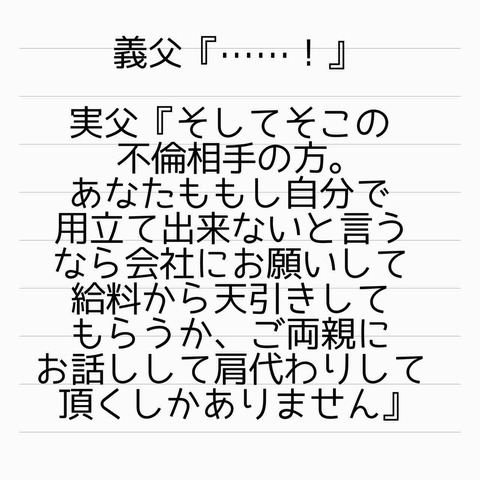 義父『……！』
実父『そしてそこの
不倫相手の方。
あなたももし自分で
用立て出来ないと言う
なら会社にお願いして
給料から天引きして
もらうか、ご両親に
お話しして肩代わりして
頂くしかありません』